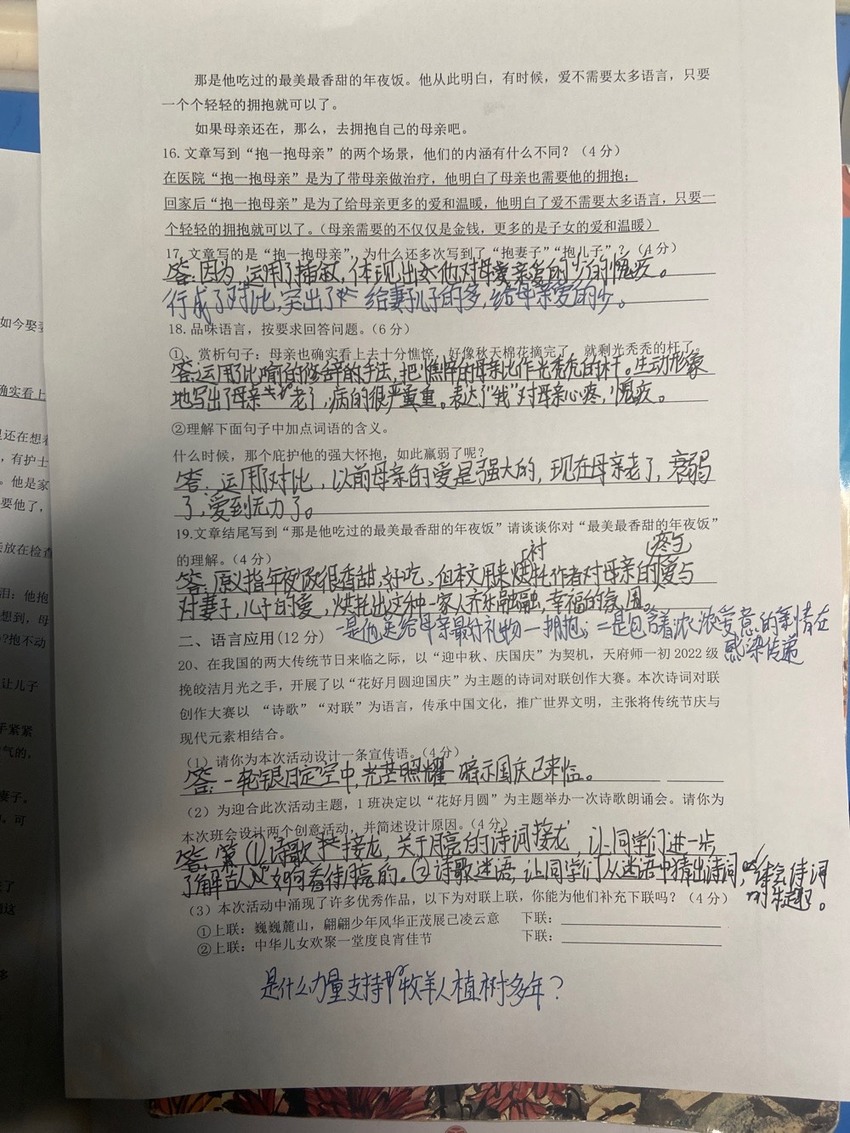 那是他吃过的最美最香甜的年夜饭。他从此明白，有时候，爱不需要太多语言，只要
一个个轻轻的拥抱就可以了。
如果母亲还在，那么，去拥抱自己的母亲吧。
16.文章写到“抱一抱母亲”的两个场景，他们的内涵有什么不同？（4 分）
在医院“抱一抱母亲”是为了带母亲做治疗，他明白了母亲也需要他的拥抱；
回家后“抱一抱母亲”是为了给母亲更多的爱和温暖，他明白了爱不需要太多语言，只要一
个轻轻的拥抱就可以了。（母亲需要的不仅仅是金钱，更多的是子女的爱和温暖）
17.文章写的是“抱一抱母亲”，为什么还多次写到了“抱妻子”“抱儿子”？（4 分）
答：因为，运用了插叙，体现出他对母爱亲爱的少的愧疚。
行成了对比，突出了给妻儿子的多，给母亲爱的少。
18.品味语言，按要求回答问题。（6 分）
①、赏析句子：母亲也确实看上去十分憔悴，好像秋天棉花摘完了，就剩光秃秃的杆了。
答：运用了比喻的修辞的手法，把憔悴的母亲比作光秃秃的杆。生动形象
地写出了母亲老了，病的很严重。表达了“我”对母亲心疼，愧疚。
②理解下面句子中加点词语的含义。
什么时候，那个庇护他的强大怀抱，如此羸弱了呢？
答：运用了对比，以前母亲的爱是强大的，现在母亲老了，衰弱
了，爱到无力了。
19.文章结尾写到“那是他吃过的最美最香甜的年夜饭”请谈谈你对“最美最香甜的年夜饭”
的理解。（4 分）
衬
答：原义指年夜饭很香甜，好吃、但本文用来烘托作者对母亲的爱与
对妻子，儿子的爱，烘托出这种一家人齐乐融融，幸福的氛围。
一是他送给母亲最好礼物—拥抱；二是包含着浓浓爱意的亲情在
感染传递
二、语言应用(12 分)
20、在我国的两大传统节日来临之际，以“迎中秋、庆国庆”为契机，天府师一初 2022 级
挽皎洁月光之手，开展了以“花好月圆迎国庆”为主题的诗词对联创作大赛。本次诗词对联
创作大赛以 “诗歌”“对联”为语言，传承中国文化，推广世界文明，主张将传统节庆与
现代元素相结合。
（1）请你为本次活动设计一条宣传语。（4分）
答：一轮银月定空中，光芒照耀暗示国庆已来临。
（2）为迎合此次活动主题，1 班决定以“花好月圆”为主题举办一次诗歌朗诵会。请你为
本次班会设计两个创意活动，并简述设计原因。（4 分）
答：①诗歌接龙，关于月亮的诗词接龙，让同学们进一步
了解古人是如何看待月亮的。②诗歌迷语，让同学们从迷语中猜出诗词，体会诗词
的乐趣。
（3）本次活动中涌现了许多优秀作品，以下为对联上联，你能为他们补充下联吗？（4 分）
①上联：巍巍麓山，翩翩少年风华正茂展己凌云意 下联：
②上联：中华儿女欢聚一堂度良宵佳节 下联：
是什么力量支持牧羊人植树多年？